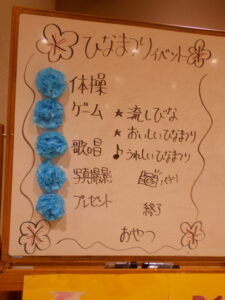 ひなまつりイベント
体操
ゲーム ★流しびな
★おいしいひなまつり
歌唱 ♪うれしいひなまつり
写真撮影
プレゼント
終了
おやつ